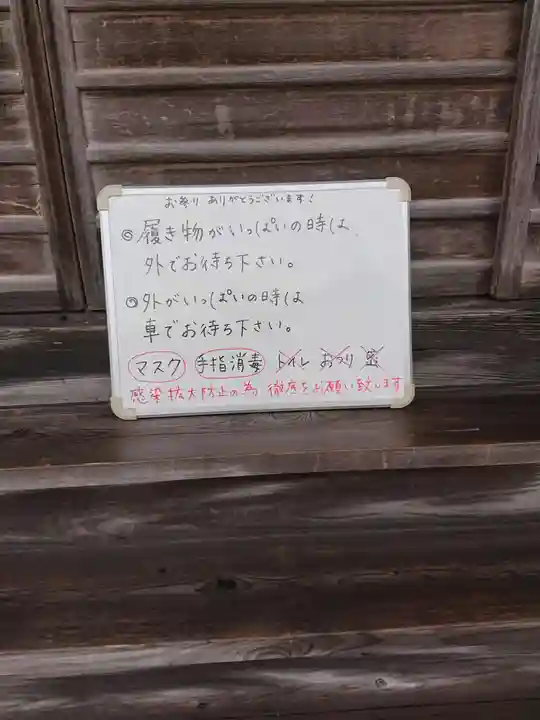 お参り ありがとうございます!
◎履き物がいっぱいの時は、
外でお待ち下さい。
◎外がいっぱいの時は
車でお待ち下さい。
マスク 手指消毒 トイレ おつり 密
感染拡大防止の為 徹底をお願い致します